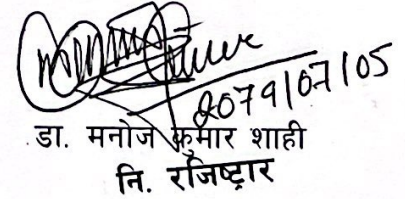 2079/07/05
डा. मनोज कुमार शाही
नि. रजिष्ट्रार